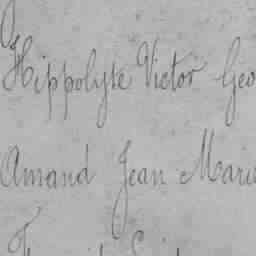 Hippolyte Victor Geo
Amand Jean Marie